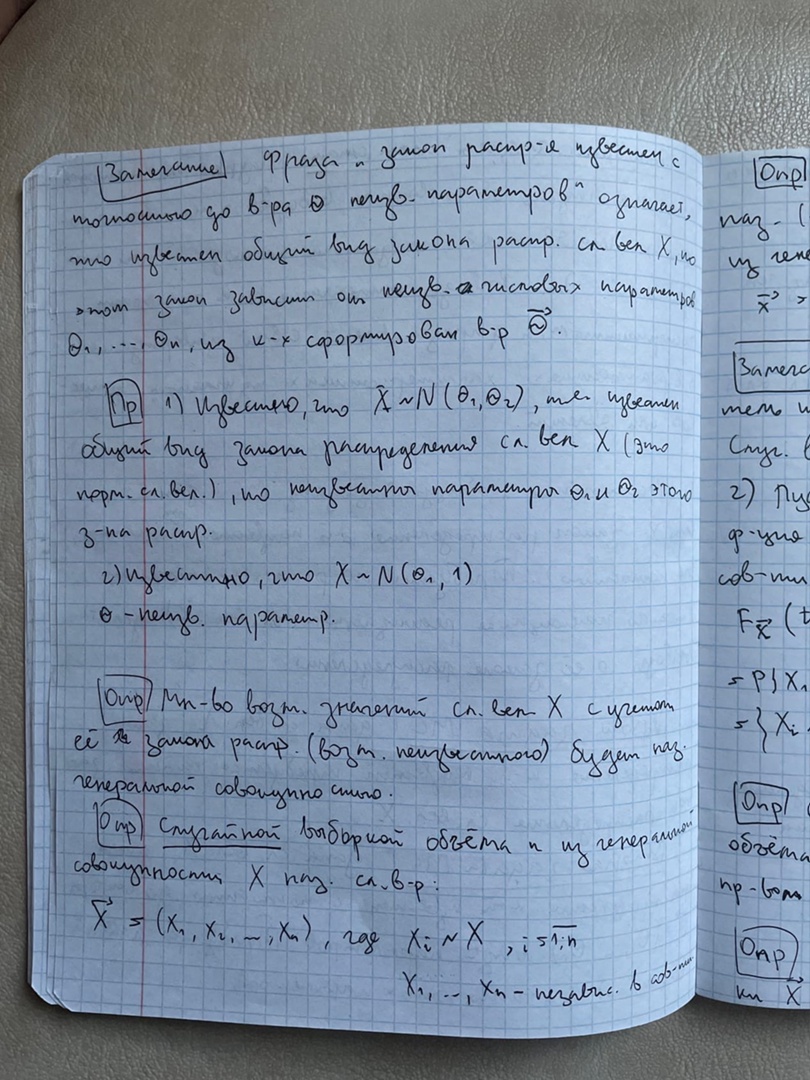 Замечание Фраза „закон распр-я известен с
точностью до в-ра θ неизв. параметров" означает,
что известен общий вид закона распр. сл. вел X, но
этот закон зависит от неизв. числовых параметров
θ₁, ..., θn, из к-х сформирован в-р θ⃗.
Пр 1) Известно, что X ~ N(θ₁, θ₂), т.е. известен
общий вид закона распределения сл. вел X (это
норм. сл. вел.), но неизвестны параметры θ₁ и θ₂ этого
з-на распр.
2) известно, что X ~ N(θ₁, 1)
θ - неизв. параметр.
Опр Мн-во возм. значений сл. вел X с учетом
её закона распр. (возм. неизвестного) будем наз.
генеральной совокупностью.
Опр Случайной выборкой объёма n из генеральной
совокупности X наз. сл. в-р:
X⃗ = (X₁, X₂, ..., Xn), где Xi ~ X, i = 1;n
X₁, ..., Xn - независ. в сов-ти
Опр
наз. (
из гене
x⃗ =
Замеч
Случ. в
2) Пус
ф-ция
сов-ти
F X⃗ (t
= P{X₁
= {Xi
Опр
объёма
пр-вом
Опр
ки X⃗